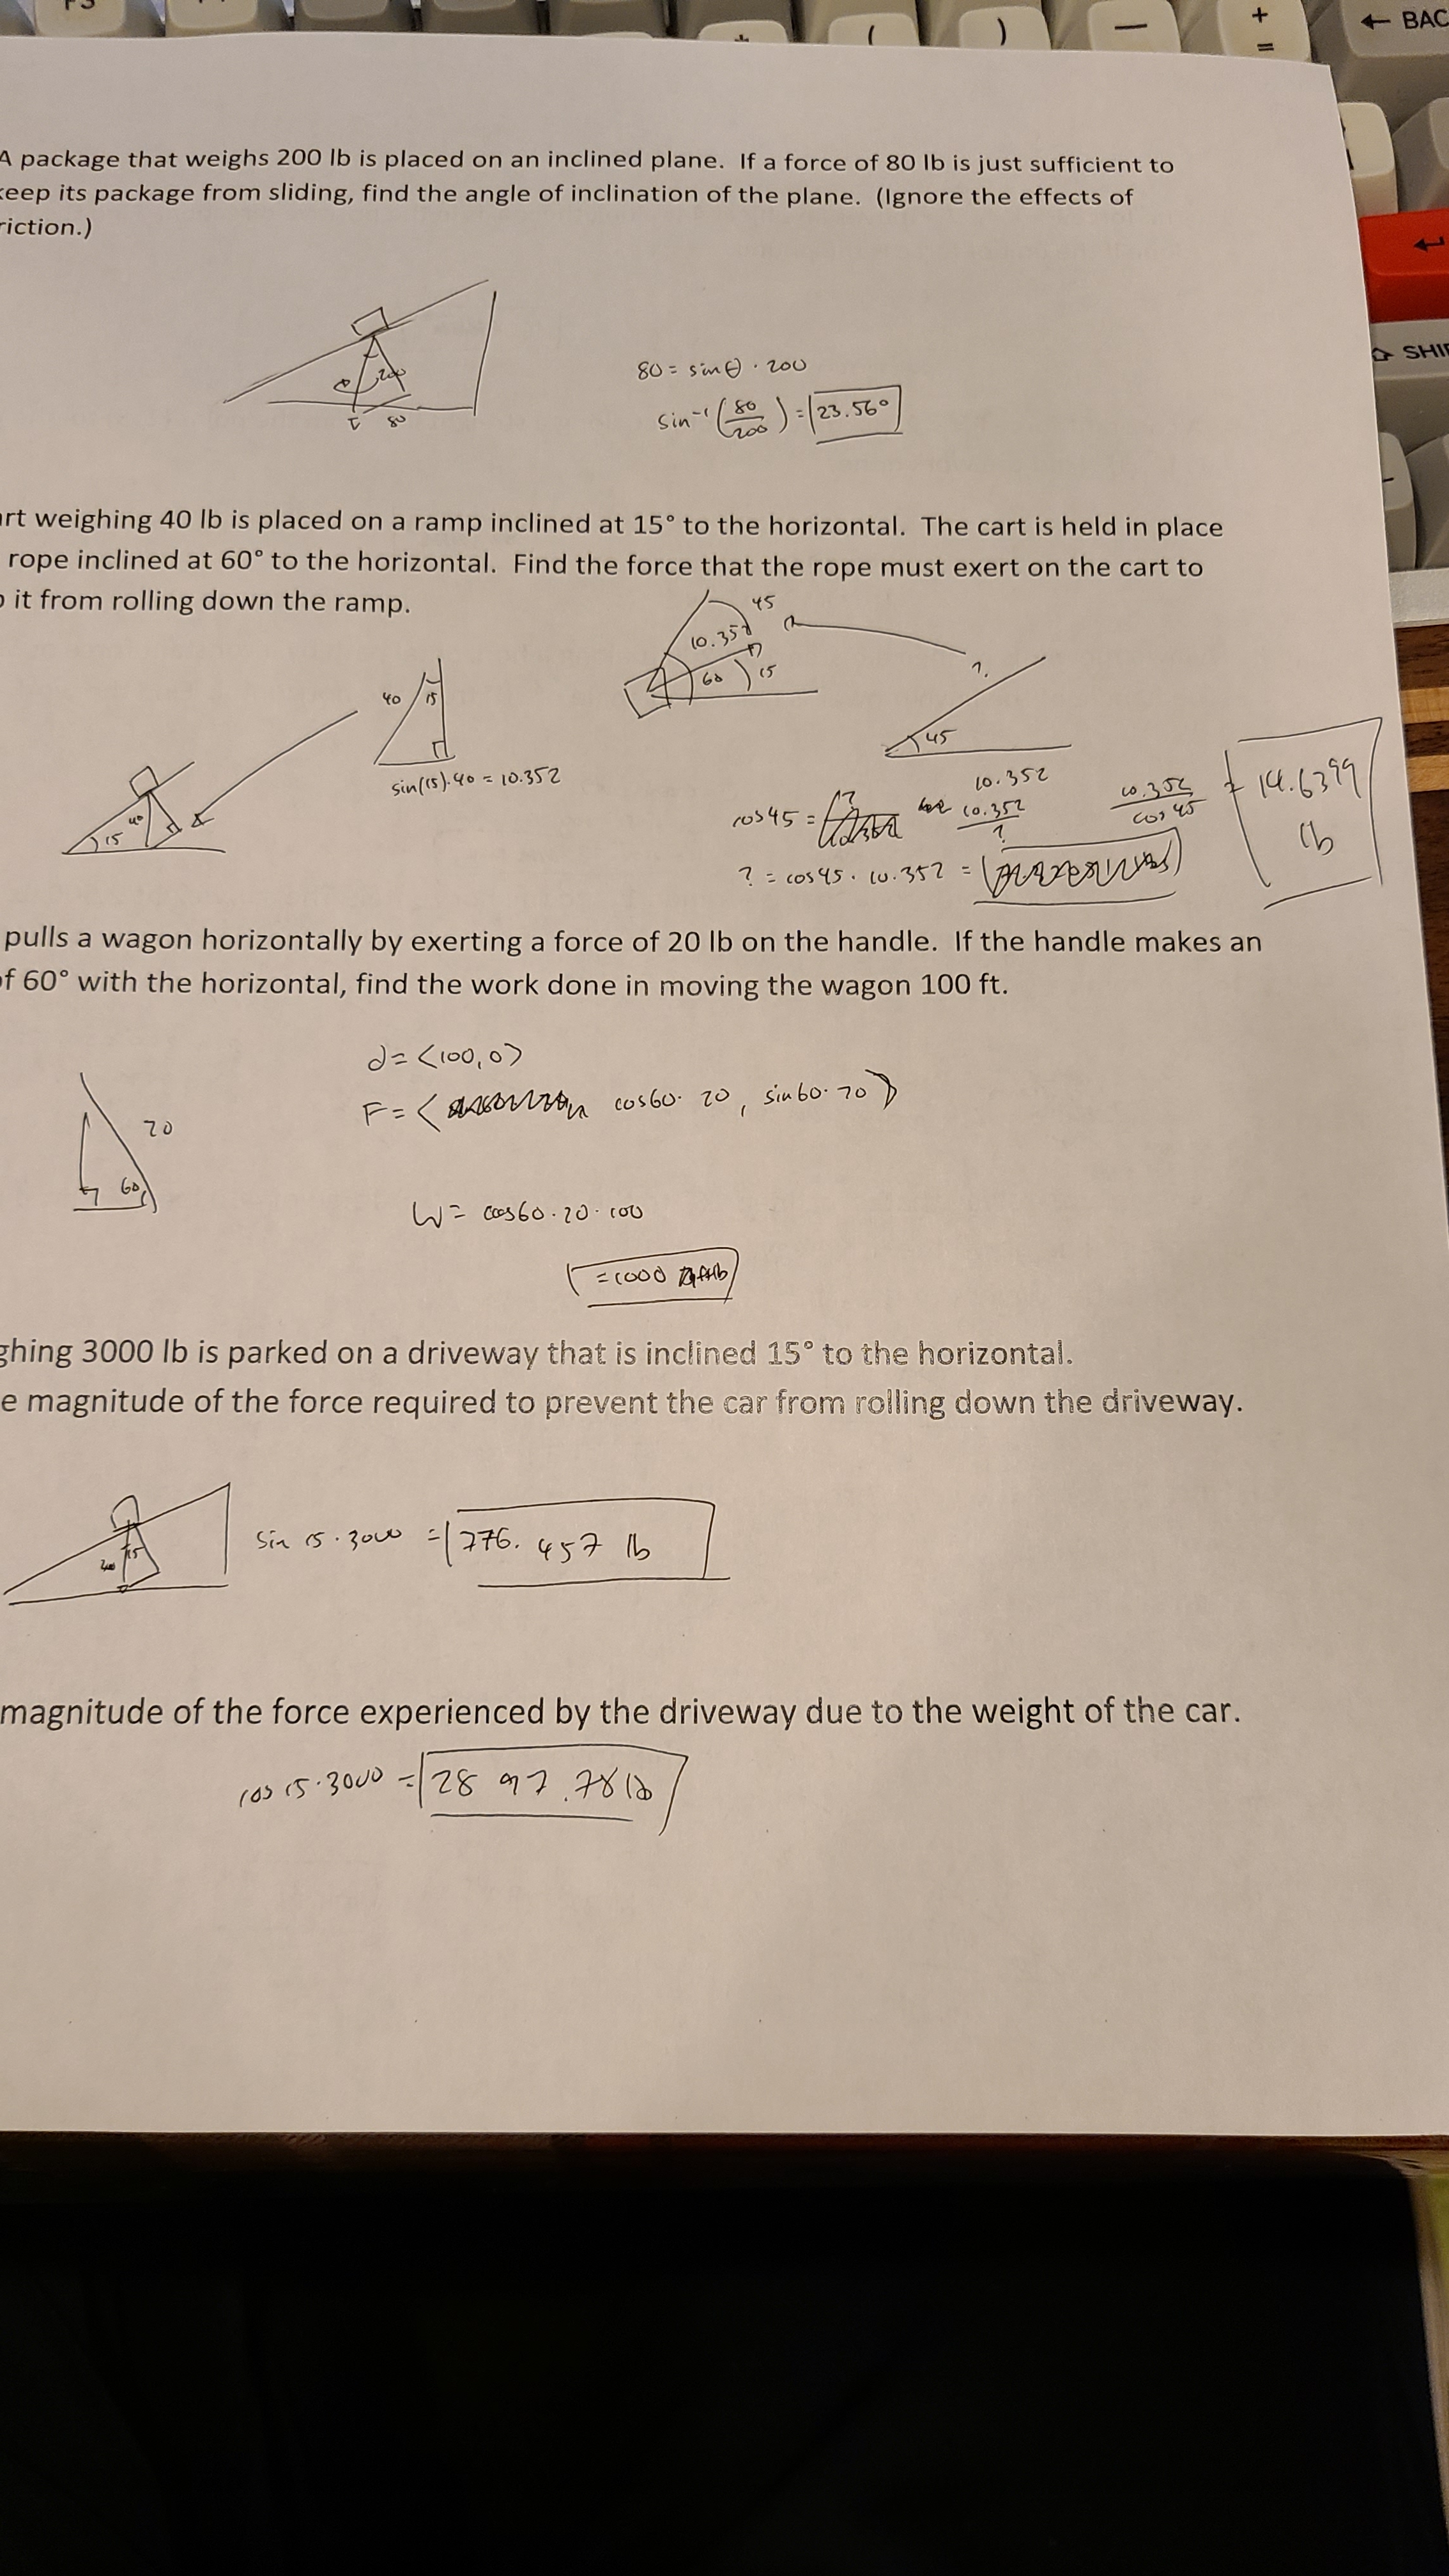 +
=
← BAC
( ) —
SHI
A package that weighs 200 lb is placed on an inclined plane. If a force of 80 lb is just sufficient to
keep its package from sliding, find the angle of inclination of the plane. (Ignore the effects of
riction.)
200
80
80 = sin θ · 200
sin⁻¹ (80/200) = 23.56°
art weighing 40 lb is placed on a ramp inclined at 15° to the horizontal. The cart is held in place
rope inclined at 60° to the horizontal. Find the force that the rope must exert on the cart to
it from rolling down the ramp.
40
15
sin(15).40 = 10.352
15
40
45
10.352
60
15
?
45
10.352
cos 45 =
10.352/?
10.352/cos 45 = 14.6399
lb
? = cos 45 · 10.352 =
pulls a wagon horizontally by exerting a force of 20 lb on the handle. If the handle makes an
of 60° with the horizontal, find the work done in moving the wagon 100 ft.
20
60
d = <100, 0>
F = < cos 60 · 20, sin 60 · 20 >
W = cos 60 · 20 · 100
= 1000
ghing 3000 lb is parked on a driveway that is inclined 15° to the horizontal.
e magnitude of the force required to prevent the car from rolling down the driveway.
15
sin 15 · 3000 = 776.457 lb
magnitude of the force experienced by the driveway due to the weight of the car.
cos 15 · 3000 = 2897.78 lb